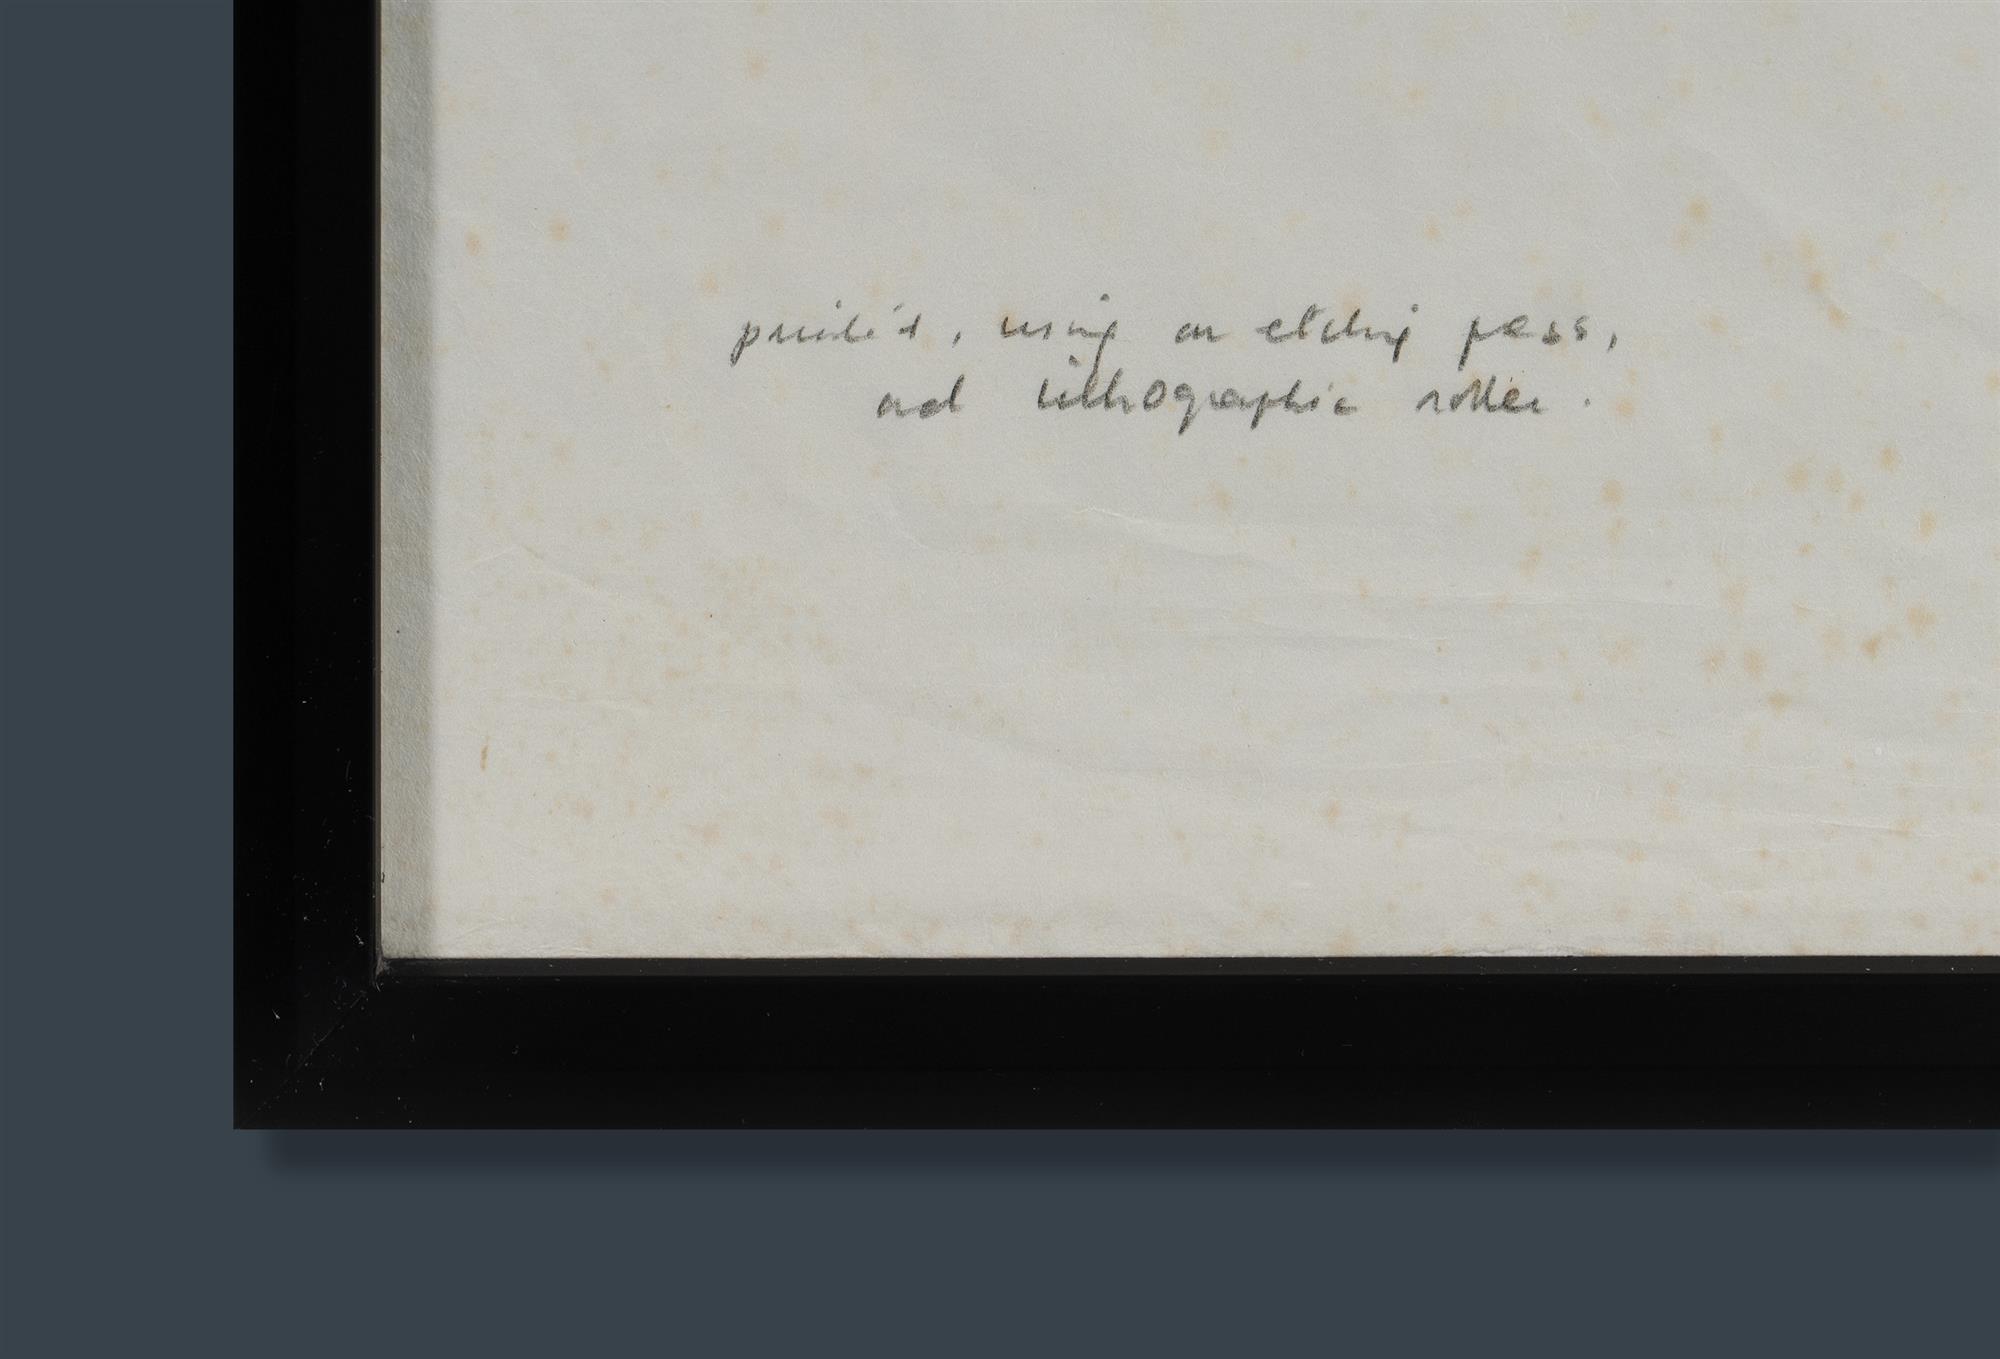 printed, using an etching press,
and lithographic roller.